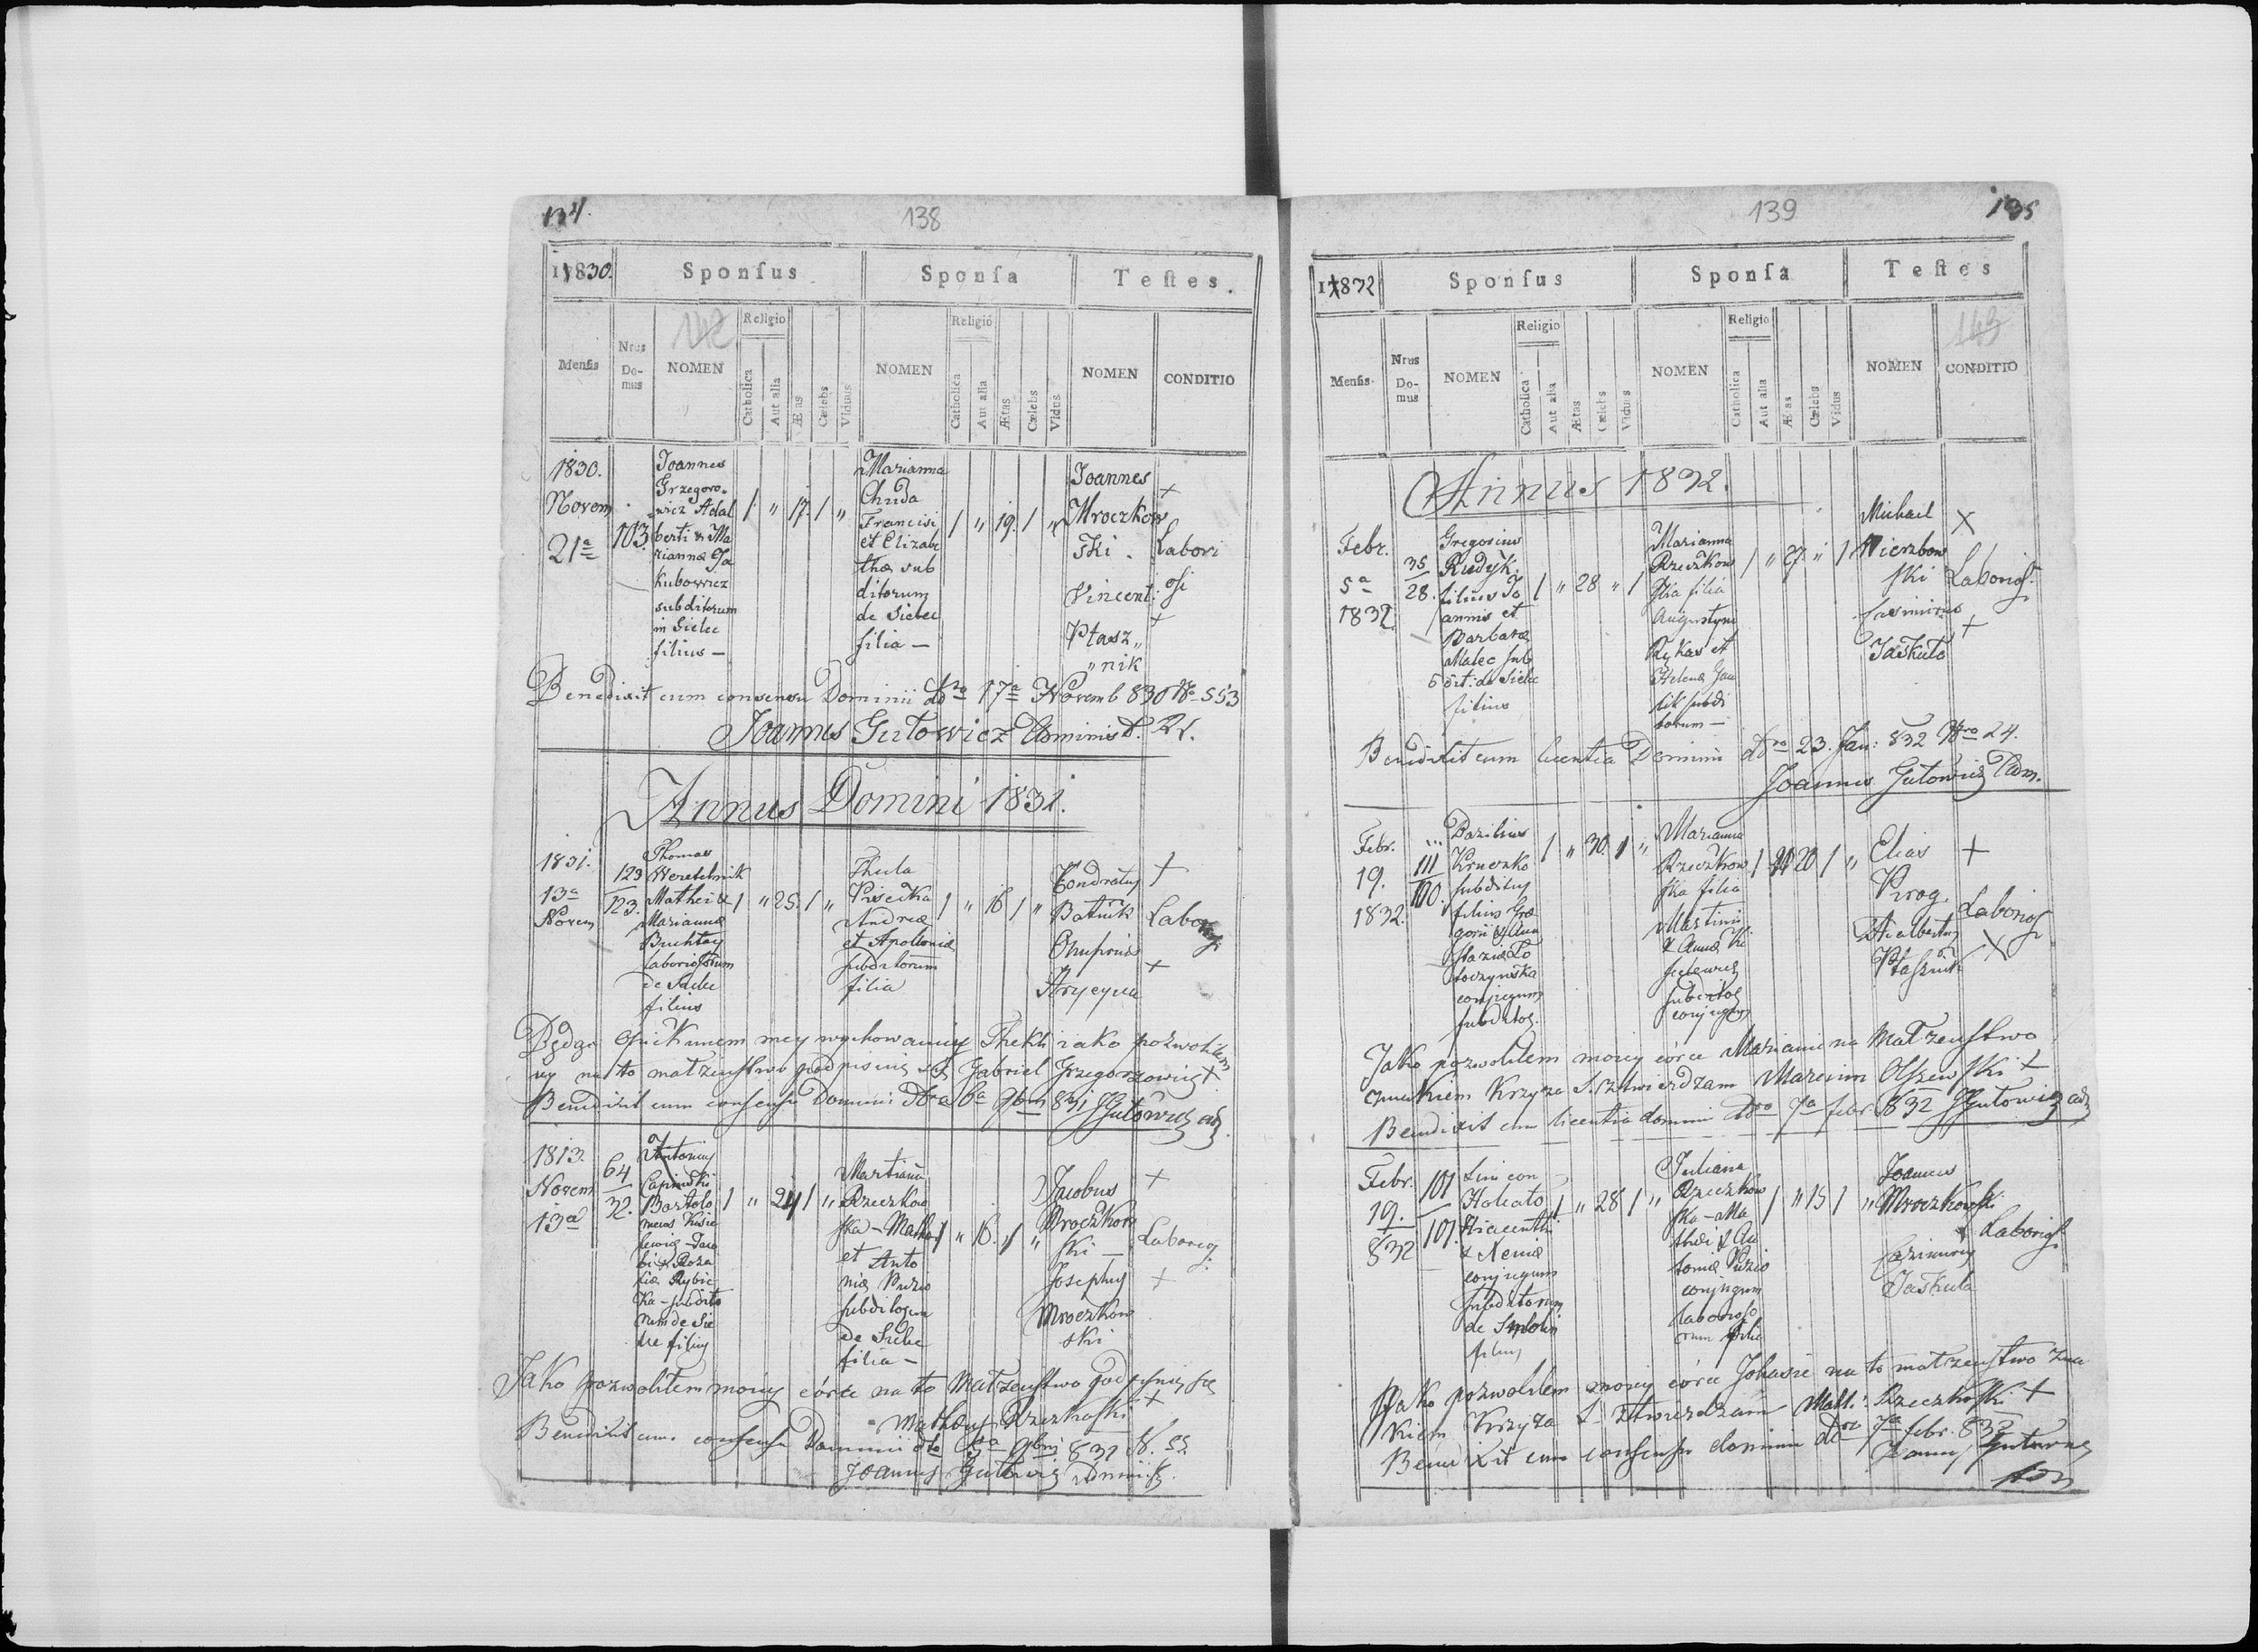 134.
138
1830.
Sponſus
Sponſa
Teſtes.
Menſis
Nrus Do-mus
142
NOMEN
Religio
Catholica
Aut alia
Ætas
Cælebs
Viduus
NOMEN
Religio
Catholica
Aut alia
Ætas
Cælebs
Vidus
NOMEN
CONDITIO
1830.
Novem
21a
103.
Joannes
Grzegoro-
wicz Adal
berti & Ma
riannæ Ja
kubowicz
subditorum
in Sielec
filius —
1 " 17. 1 "
Marianna
Chuda
Francisi
et Elizabe
thæ sub
ditorum
de Sielec
filia —
1 " 19. 1 "
Joannes
Mroczkow
ski.
Vincent:
Ptasz„
„nik
+
Labori
osi
+
Benedixit cum consensu Dominii ddto 17a Novemb 830 No 553
Joannes Gutowicz Administ.
Annus Domini 1831.
1831.
13a
Novem
123
123.
Thomas
Weretelnik
Mathei &
Mariannæ
Buchtay
laboriosorum
de Sielec
filius
1 " 25. 1 "
Thecla
Andreæ
et Apolloniæ
subditorum
filia
1 " 16 1 "
Kondratus
Batiuk
Onuprius
+
Labo
+
Będąc opiekunem mey wychowanicy Thekli iako pozwoliłem
iey na to małżenstwo podpisuię się Gabriel Grzegorzowicz +
Benedixit cum consensu Dominii ddto 6a 9bris 831 JGutowicz ad
1813.
Novem
13a
64
32.
Antonius
Bartolo
meus Kisie
lewicz - Jaco
bi & Roza
liæ Rybic
ka - subdito
rum de Sie
lec filius
1 " 24 1 "
Martianna
Rzeczkow
ska - Mathei
et Anto
niæ Puzio
subditorum
de Sielec
filia —
1 " 16. 1 "
Jacobus
Mroczkow
ski —
Josephus
Mroczkow
ski
+
Laborios
+
Jako pozwoliłem moiey córce na to Małżenstwo podpisuię się
Matheus Rzeczkoski +
Benedixit cum consensu Dominii ddto 9bris 831 N. 55.
Joannes Gutowicz Administ.
139
135
1832
Sponſus
Sponſa
Teſtes
Menſis.
Nrus Do-mus
NOMEN
Religio
Catholica
Aut alia
Ætas
Cælebs
Viduus
NOMEN
Religio
Catholica
Aut alia
Ætas
Cælebs
Vidus
NOMEN
143
CONDITIO
Annus 1832.
Febr.
5a
1832.
35
28.
Gregorius
Rudyk.
filius Jo
annis et
Barbaræ
Malec sub
dit: de Sielec
filius
1 " 28 " 1
Marianna
Rzeczkow
ska filia
Augustyni
Rykas et
Helenæ
subdi
torum —
1 " 27. " 1
Michael
Wierzbow
ski
Casimirus
Jaskuła
X
Laborios.
+
Benedixit cum licentia Dominii ddto 23. Jan: 832 Nro 24.
Joannes Gutowicz Adm.
Febr.
19.
1832.
111
100.
Bazilius
Kruczko
subditus
filius Gre
gorii & Ana
staziæ To
łoczynska
conjugum
subditos.
1 " 30. 1 "
Marianna
Rzeczkow
ska filia
Martini
& Annæ Ki
sielewicz
subditos
conjugum
1 " 20 1 "
Elias
Pirog.
Adalbertus
Ptasznik
+
Laborios
X
Jako pozwoliłem moiey córce Mariannie na Małżenstwo
znakiem Krzyża S. ztwierdzam Marcim Olszewski +
Benedixit cum licentia dominii ddto 7a febr. 832 JGutowicz ad
Febr.
19.
832
101
101.
Simeon
Hołeato
Hiacenthi
& Xeniæ
conjugum
subditorum
de Smolin
filius
1 " 28 1 "
Juliana
Rzeczkow
ska - Ma
thei & An
toniæ Puzio
conjugum
laborioso
rum filia
1 " 15 1 "
Joannes
Mroczkowski
Cazimirus
Jaskuła
Laborios
Jako pozwoliłem moiey córce Johasie na to małżenstwo zna
kiem Krzyża S. ztwierdzam Math: Rzeczkoski +
Benedixit cum consensu dominii ddto 7a febr. 832
Joannes Gutowicz
Adm